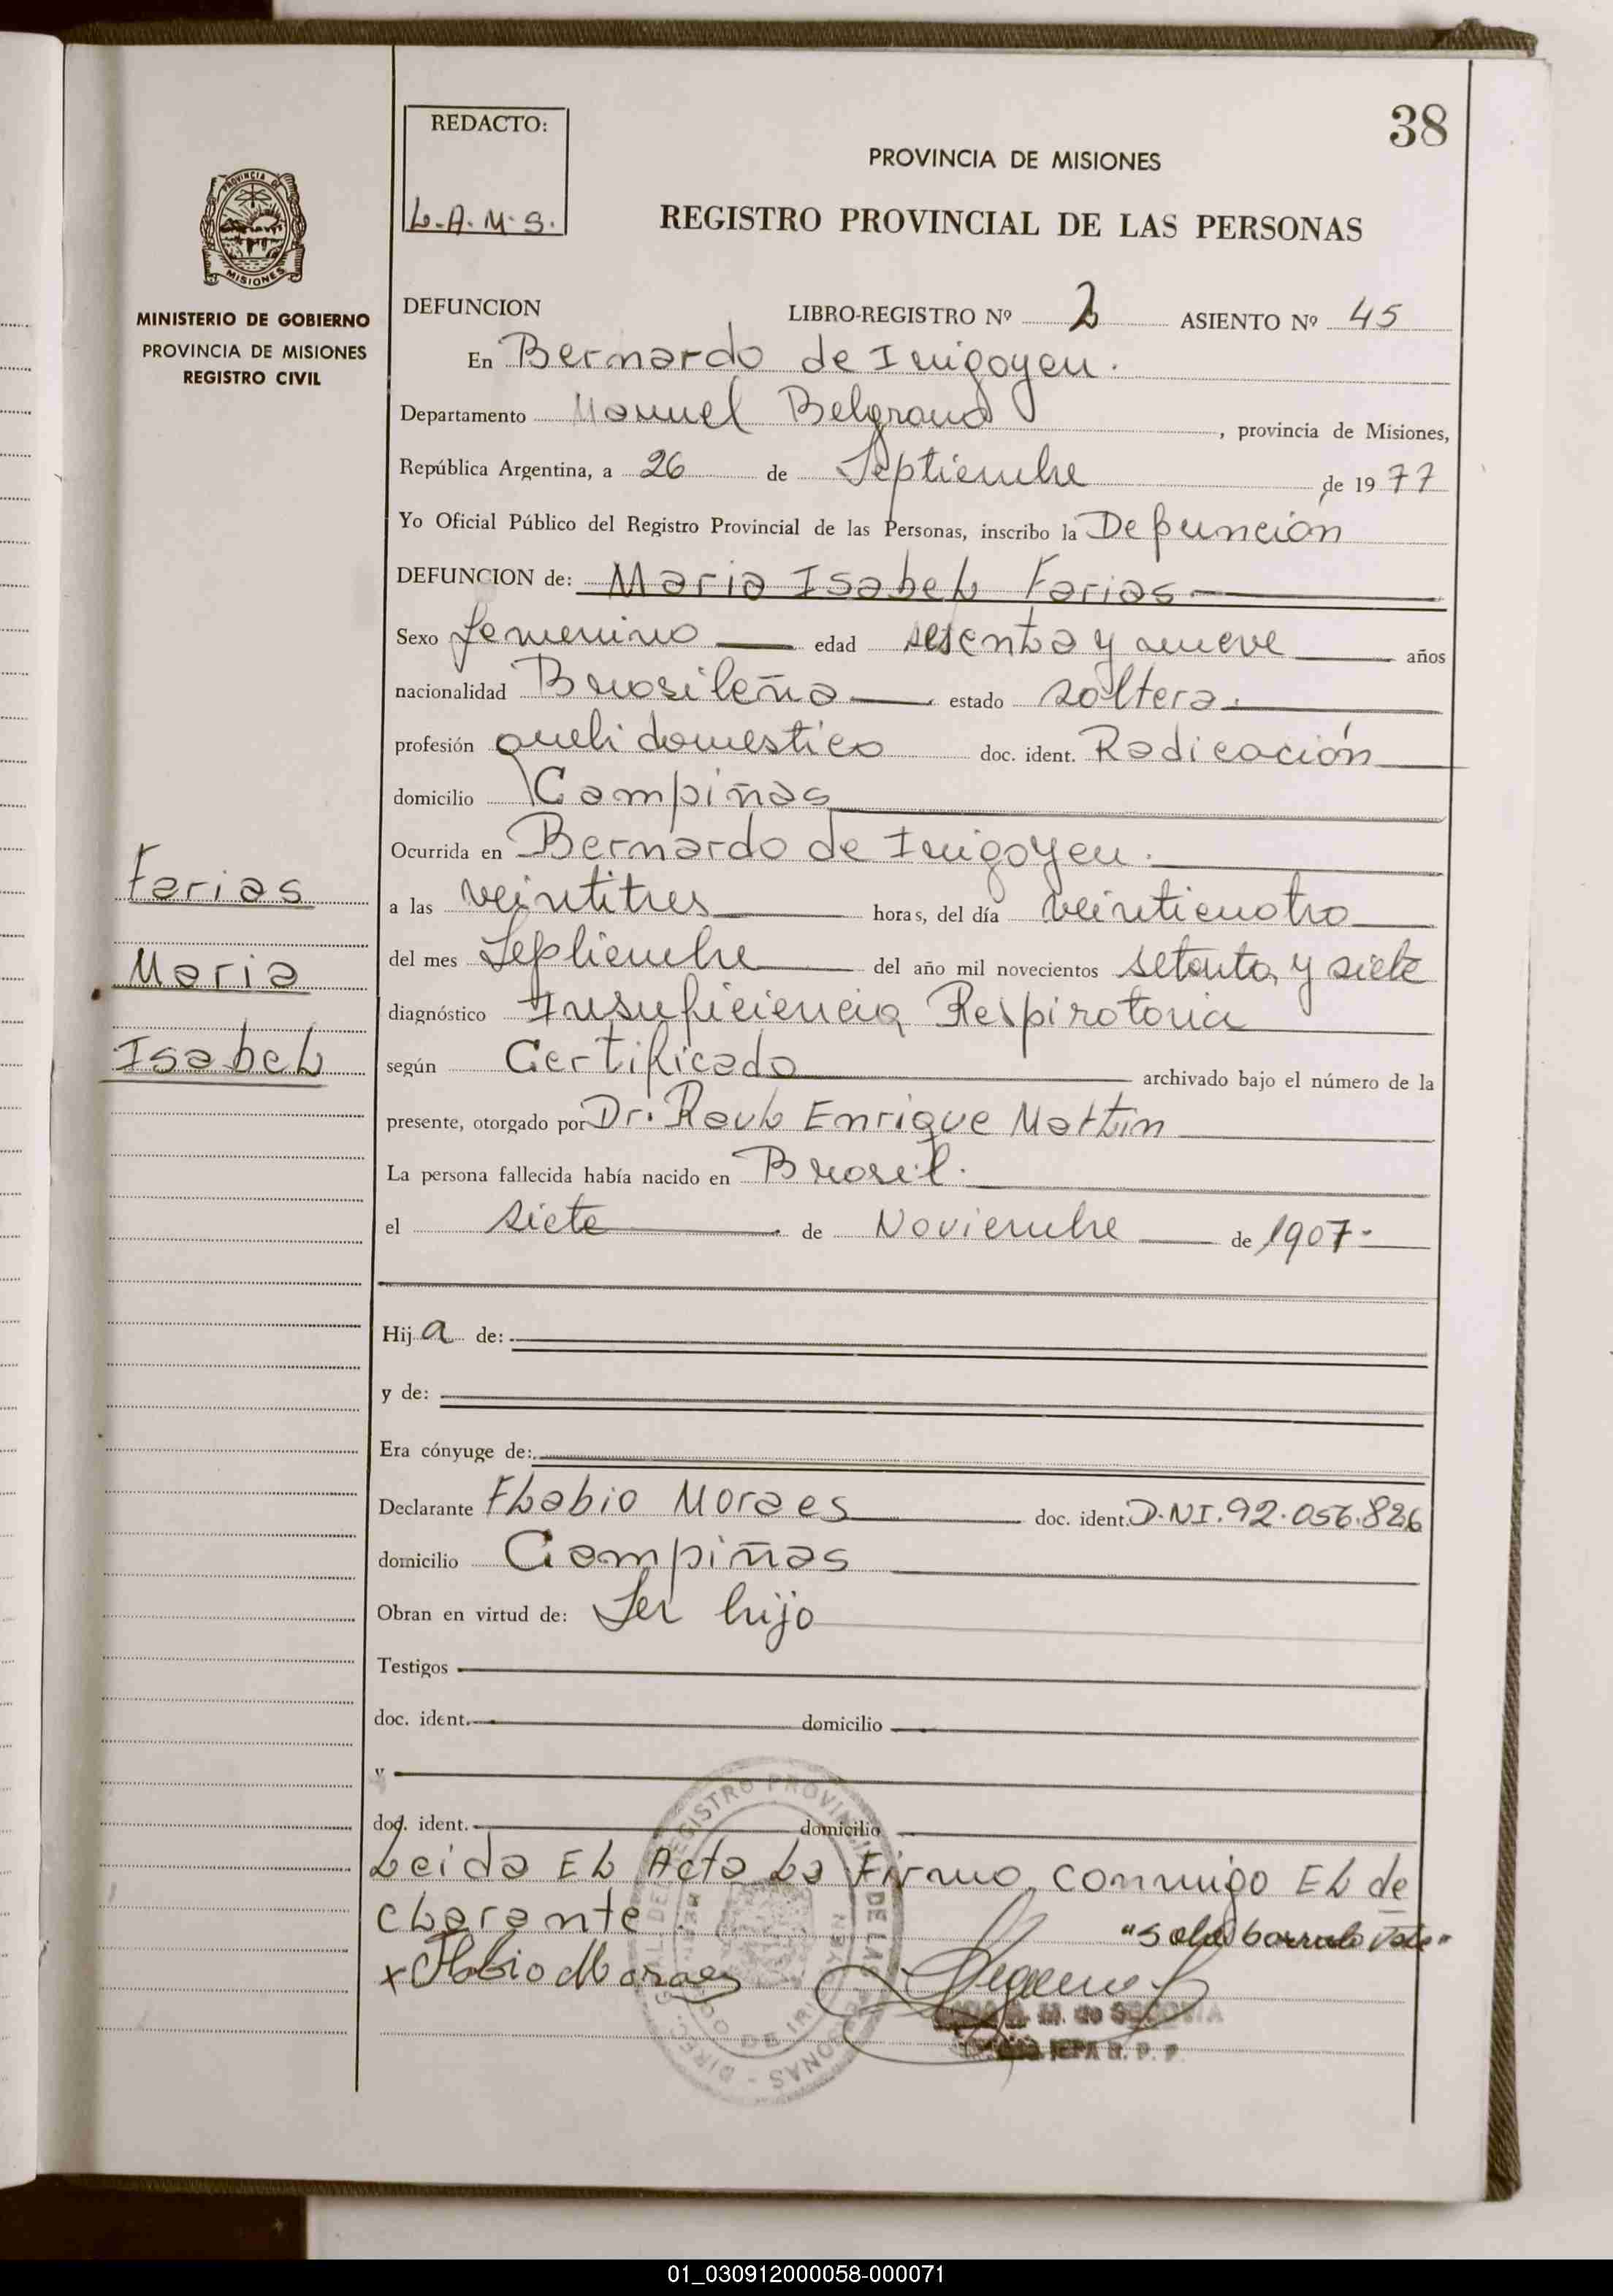 38
REDACTO:
L.A.M.S.
PROVINCIA DE MISIONES
REGISTRO PROVINCIAL DE LAS PERSONAS
PROVINCIA DE
MISIONES
MINISTERIO DE GOBIERNO
PROVINCIA DE MISIONES
REGISTRO CIVIL
DEFUNCION LIBRO-REGISTRO Nº 2 ASIENTO Nº 45
En Bernardo de Irigoyen.
Departamento Manuel Belgrano, provincia de Misiones,
República Argentina, a 26 de Septiembre de 1977
Yo Oficial Público del Registro Provincial de las Personas, inscribo la Defunción
DEFUNCION de: Maria Isabel Farias
Sexo femenino edad sesenta y nueve años
nacionalidad Brasileña estado soltera.
profesión domestico doc. ident. Radicación
domicilio Campiñas
Ocurrida en Bernardo de Irigoyen.
a las veintitres horas, del día veinticuatro
del mes Septiembre del año mil novecientos setenta y siete
diagnóstico Insuficiencia Respiratoria
según Certificado archivado bajo el número de la
presente, otorgado por Dr. Raul Enrique Martin
La persona fallecida había nacido en Brasil.
el siete de Noviembre de 1907.
Hija de:
y de:
Era cónyuge de:
Declarante Flabio Moraes doc. ident. D.NI.92.056.826
domicilio Campiñas
Obran en virtud de: Ser hijo
Testigos
doc. ident. domicilio
y
doc. ident. domicilio
Leida El Acta La Firma conmigo El de
clarante.
Flabio Moraes
Farias
Maria
Isabel
01_030912000058-000071